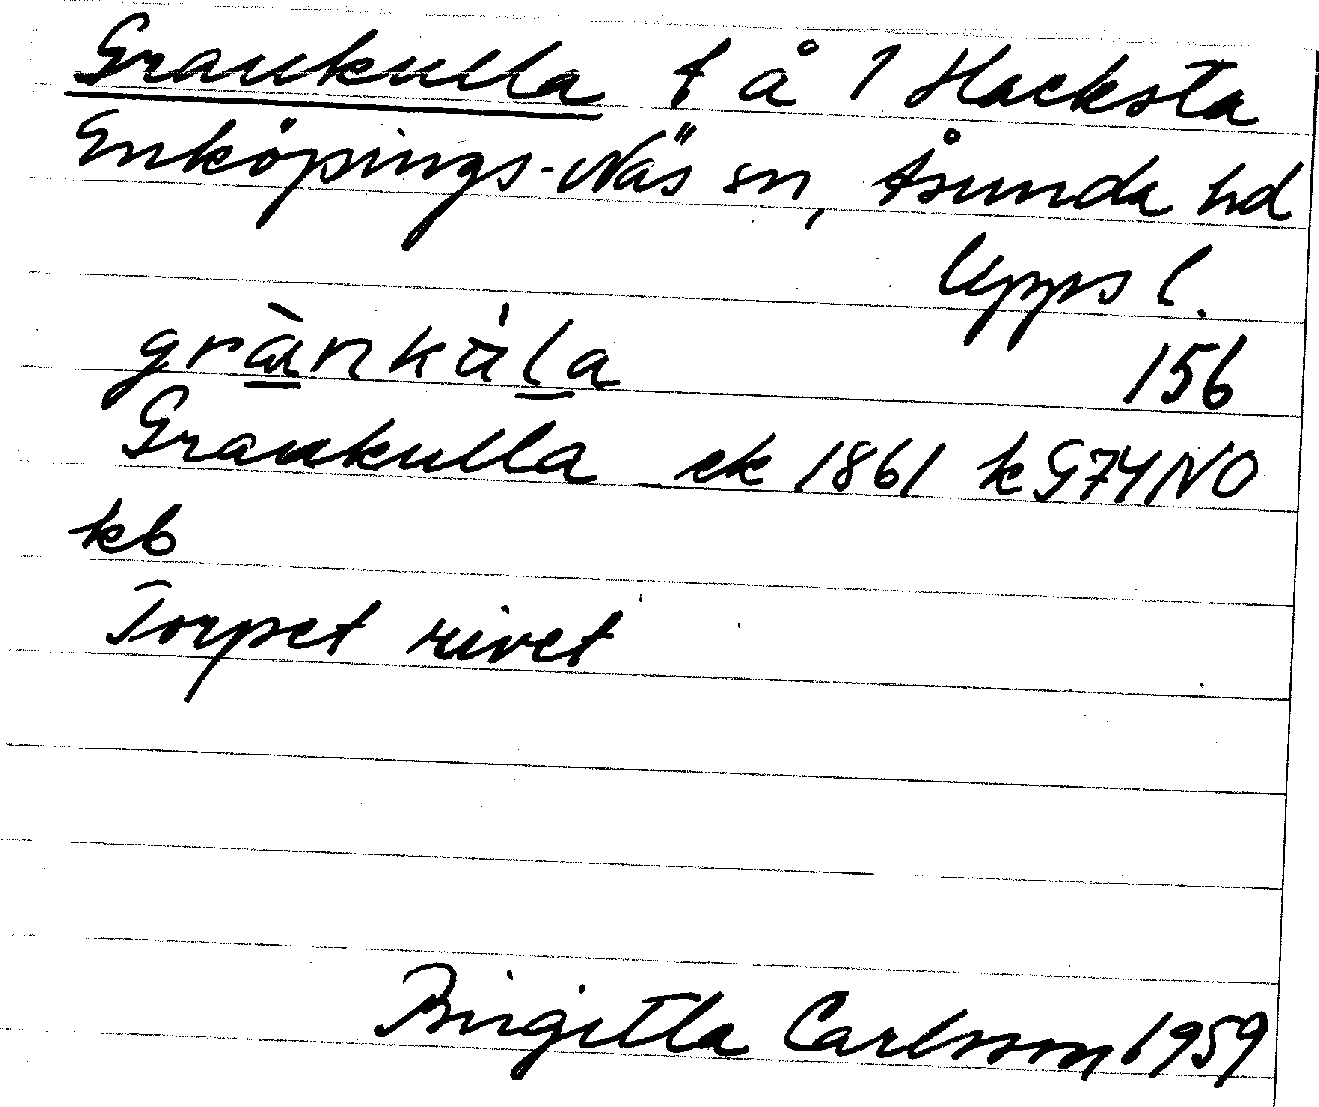 Grankulla t å 1 Hacksta
Enköpings-Näs sn, Åsunda hd
Upps l.
156
Grankulla ek 1861 k G74NO
kb
Torpet rivet
Birgitta Carlsson 1959